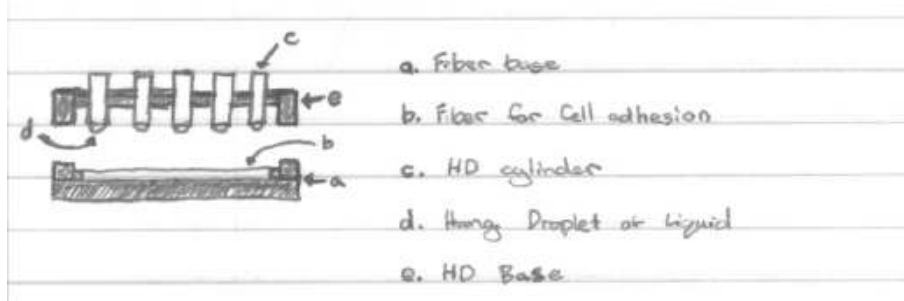 c
a. Fiber base
e
b. Fiber for Cell adhesion
d
b
c. HD cylinder
a
d. Hang Droplet or Liquid
e. HD Base